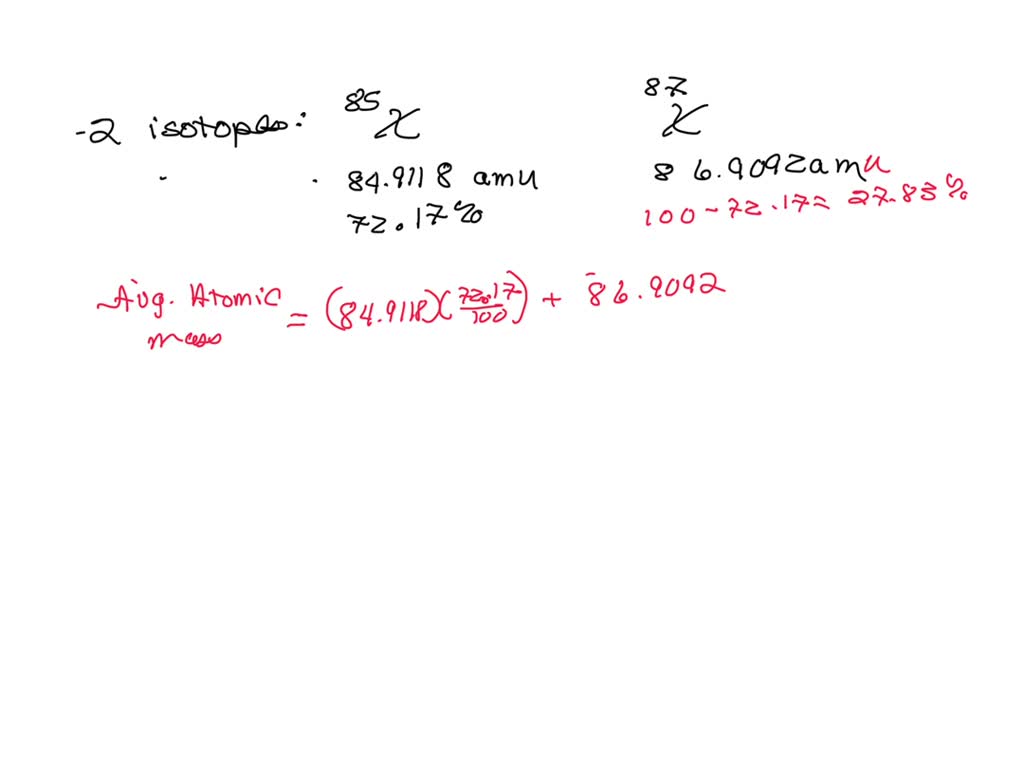 -2 isotopes: 85 X 87 X
84.9118 amu 86.9092amu
72.17% 100-72.17= 27.83%
Avg. Atomic mass = (84.9118)(72.17/100) + 86.9092